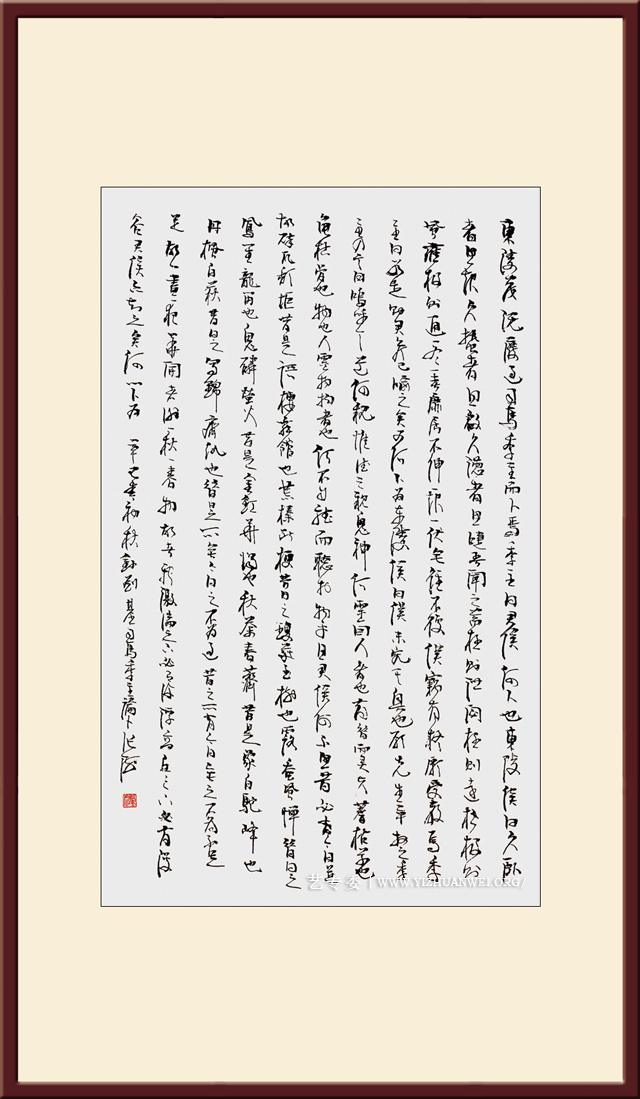 東陵侯既廢過司馬季主而卜焉季主曰君侯何卜也東陵侯曰久臥
者思起久蟄者思啟久懣者思嚏吾聞之蓄極則洩閟極則達極極則
風壅極則通一冬一春靡屈不伸一起一伏無往不復僕竊有疑願受教焉季
主曰若是則君矣已喻之矣又何卜為東陵侯曰僕未究其奧也願先生卒教之季
主乃言曰嗚呼天道何親惟德之親鬼神何靈因人而靈夫蓍枯草也
龜枯骨也物也人靈於物者也何不自聽而聽於物乎且君侯何不思昔必有今日是
故碎瓦頹垣昔日之歌樓舞館也荒榛斷梗昔日之瓊蕤玉樹也露蠶風蟬昔日之
鳳笙龍笛也鬼燐螢火昔日之金缸華燭也秋荼春薺昔日之象白駝峰也
丹楓白荻昔日之蜀錦齊紈也昔日之所無今日有之不為過昔日之所有今日無之不為不足
是故一晝一夜華開者謝一秋一春物故者新激湍之下必有深潭高丘之下必有浚
谷君侯亦知之矣何以卜為 初秋錄劉基司馬季主論卜
艺专委 | WWW.YIZHUANWEI.ORG/